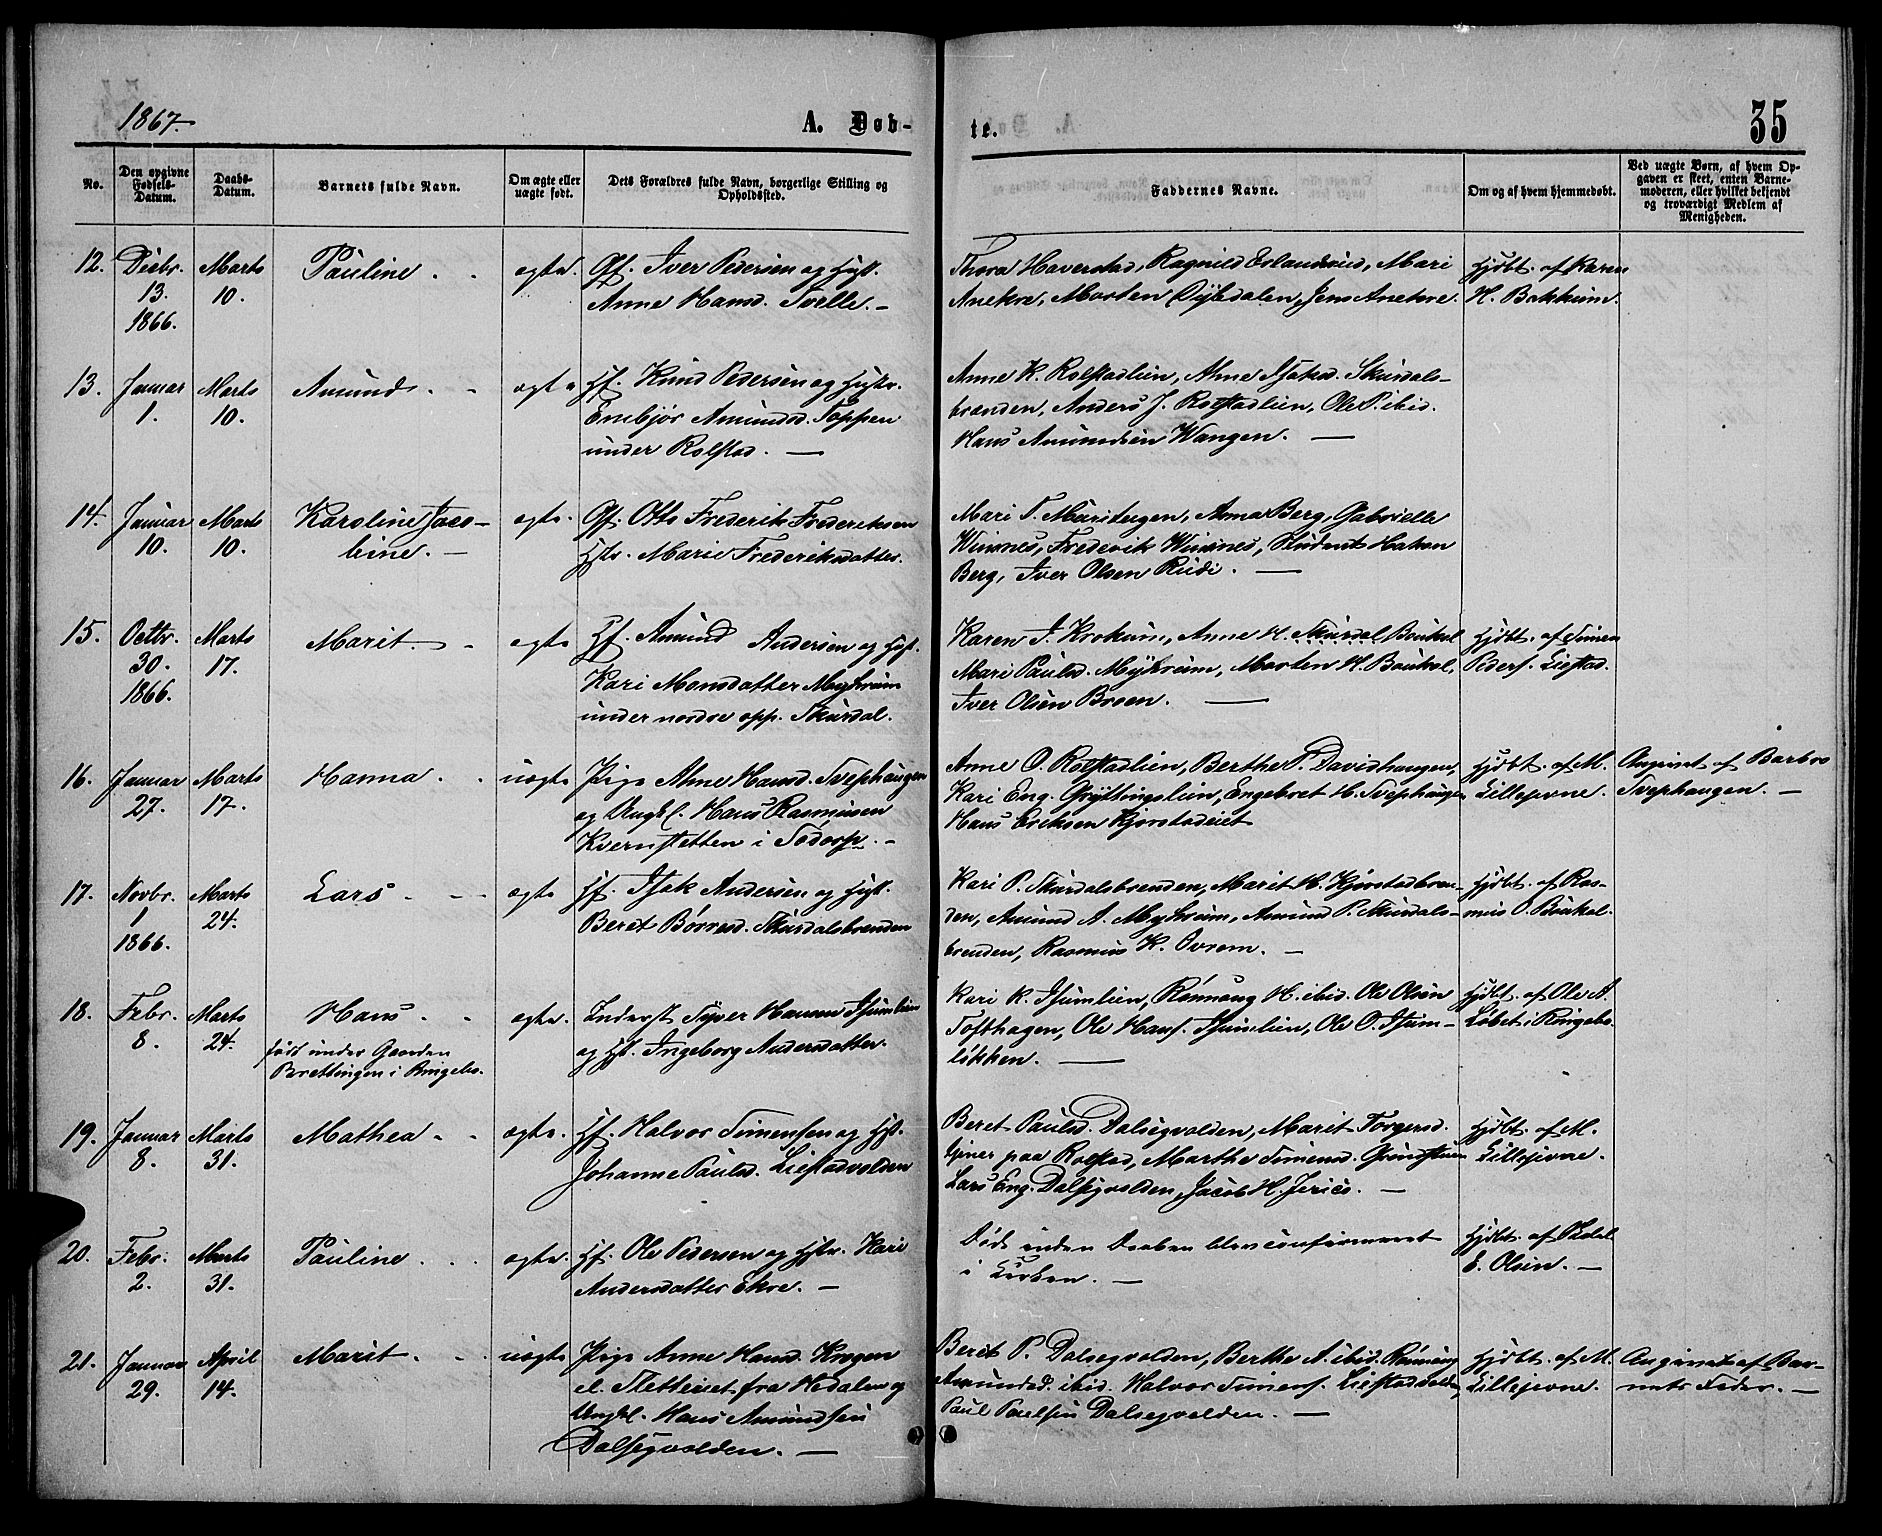 1867.
A. Døb-
te.
35
No.
Den opgivne Fødsels-Datum.
Daabs-Datum.
Barnets fulde Navn.
Om ægte eller uægte født.
Dets Forældres fulde Navn, borgerlige Stilling og Opholdssted.
Faddernes Navne.
Om og af hvem hjemmedøbt.
Ved uægte Børn, af hvem Op-
gaven er skeet, enten Barne-
moderen, eller hvilket bekjendt
og troværdigt Medlem af
Menigheden.
12. Decbr. 13. 1866. Marts 10. Pauline. ægte.
Gf. Iver Pedersen og Hust.
Anne Hansd. Tvelle. –
Thora Haverstad, Ragnild Erlandsrud, Mari
Anekre, Morten Dybdalen, Jens Anekre.
Hjdbt. af Karen
H. Bakkum.
13. Januar 1. Marts 10. Amund. ægte
Hf. Knud Pedersen og Hustr.
Embjør Amundsd. Toppen
under Rolstad. —
Anne K. Rolstadlien, Anne Isaksd. Skurdals-
brænden, Anders J. Rolstadlien, Ole P. ibid.
Hans Amundsen Wangen. —
14. Januar 10. Marts 10. Karoline Jaco-
bine. – ægte.
Gf. Otto Frederik Frederiksen
Hstr. Marie Frederiksdatter.
Mari T. Maristugen, Anna Berg, Gabrielle
Winsnes, Frederik Winsnes, Student Hakon
Berg, Iver Olsen Rudi. —
15. Octbr. 30. 1866. Marts 17. Marit. ægte
Hf. Amund Andersen og Hst.
Kari Monsdatter Myhrum
under nordre opp. Skurdal.
Karen I. Krokum, Anne H. Skurdal Baukol
Mari Paulsd. Myhrum, Morten H. Baukol,
Iver Olsen Broen. —
Hjdbt. af Simen
Peders. Liestad.
16. Januar 27. Marts 17. Hanna. uægte
Pige Anne Hansd. Tvephaugen
og Ungkl. Hans Rasmusen
Kvernstetten i Sødorp. –
Anne O. Rolstadlien, Berthe P. Davidhaugen,
Kari Eng. Gryttingslien, Engebret H. Tvephaugen
Hans Eriksen Kjorstadeiet
Hjdbt. af M.
Lillejevne.
Angivet af Barbro
Tvephaugen. –
17. Novbr. 1 1866. Marts 24. Lars. ægte
Hf. Isak Andersen og Hust.
Beret Børresd. Skurdalsbrenden
Kari P. Skurdalsbrenden, Marit H. Kjorstadbren-
den, Amund A. Myhrum, Amund P. Skurdals-
brenden, Rasmus K. Ovrem. –
Hjdbt. af Ras-
mus O. Baukol.
18. Febr. 8. Marts 24. Hans. ægte.
født under Gaarden
Brettingen i Ringebo.
Inderst Syver Hansen Isumlien
og Hst. Ingeborg Andersdatter
Kari K. Isumlien, Rønnaug H. ibid. Ole Olsen
Tofthagen, Ole Hans. Isumlien, Ole O. Isum-
løkken. —
Hjdbt. af Ole A.
Løbet i Ringebo.
19. Januar 8. Marts 31. Mathea. ægte.
Hf. Halvor Simensen og Hst.
Johanne Paulsd. Liestadvolden
Beret Paulsd. Dalsegvolden, Marit Torgersd.
tjener paa Rolstad, Marthe Simensd.
Lars Eng. Dalsegvolden, Jacob H. –
Hjdbt. af M.
Lillejevne.
20. Febr. 2. Marts 31. Pauline. ægte.
Hf. Ole Pedersen og Hstr. Kari
Andersdatter Ekre. –
Døde inden Daaben blev confirmeret
i Kirken. –
Hjdbt. af
E. Olsen. –
21. Januar 29. April 14. Marit. uægte
Pige Anne Hansd. Krogen
el. Sletteiet fra Hedalen og
Ungkl. Hans Amundsen
Dalsegvolden. —
Berit P. Dalsegvolden, Berthe A. ibid. Rønnaug
Amundsd. ibid. Halvor Simens. Liestadvolden,
Paul Paulsen Dalsegvolden. —
Hjdbt. af M.
Lillejevne.
Angivet af Bar-
nets Fader. –